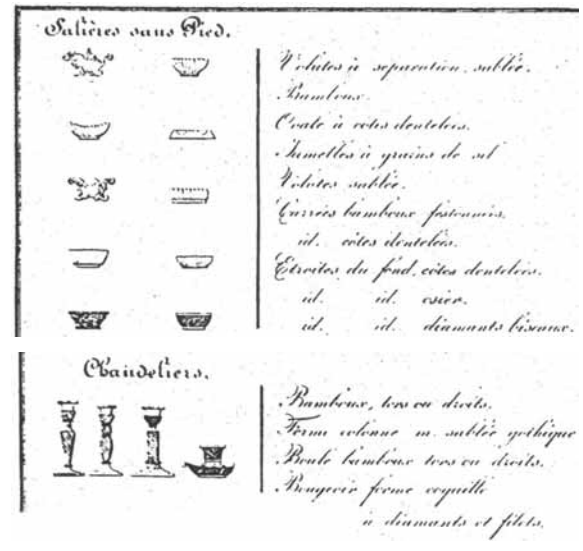 Salières sans Pied.
Volutes à séparation sablée.
Bambous.
Ovale à côtes dentelées.
Jumelles à grains de sel
Volutes sablée.
Carrées bambous festonnées.
id. côtes dentelées.
Etroites du fond, côtes dentelées.
id. id. osier.
id. id. diamants biseaux.
Chandeliers.
Bambous, tors ou droits.
Forme colonne m. sablée gothique
Boule bambous tors ou droits.
Bougeoir forme coquille
à diamants et filets.